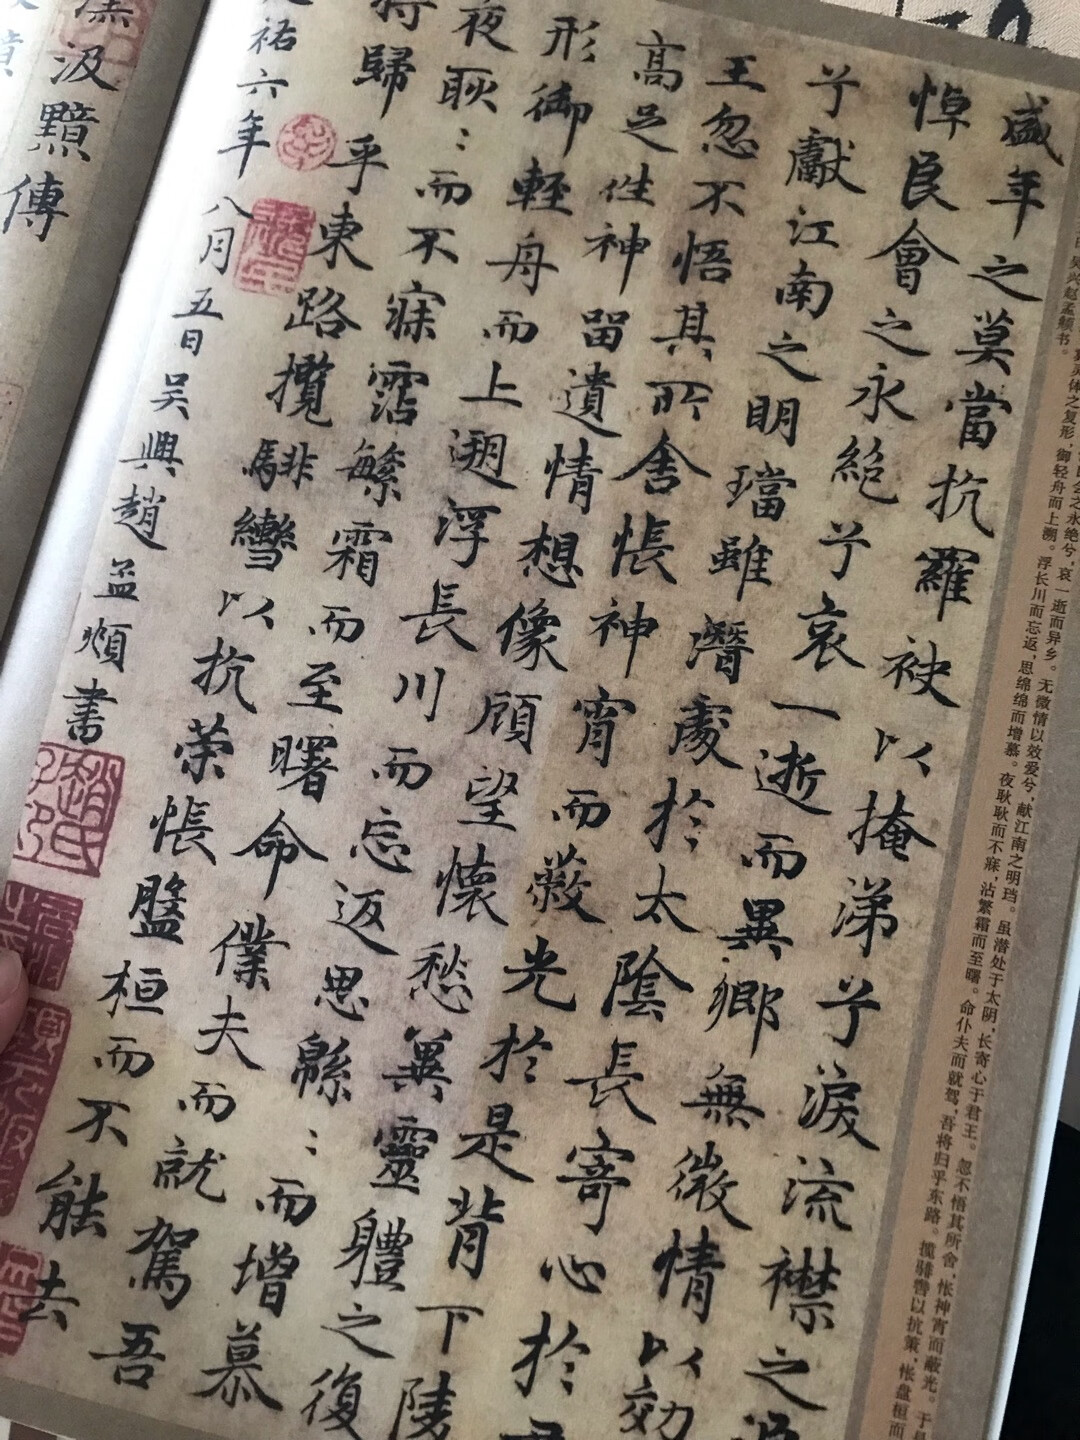 会之永绝兮，哀一逝而异乡。无微情以效爱兮，献江南之明珰。虽潜处于太阴，长寄心于君王。忽不悟其所舍，怅神宵而蔽光。于是
灵体之复形，御轻舟而上溯。浮长川而忘返，思绵绵而增慕。夜耿耿而不寐，沾繁霜而至曙。命仆夫而就驾，吾将归乎东路。揽騑辔以抗策，怅盘桓而
吴兴赵孟頫书。
盛年之莫當抗羅袂以掩涕兮淚流襟之浪
悼良會之永絕兮哀一逝而異鄉無微情以効
兮獻江南之明璫雖潛處於太陰長寄心於君
王忽不悟其所舍悵神宵而蔽光於是背下陵
高足性神留遺情想像顧望懷愁冀靈體之復
形御輕舟而上遡浮長川而忘返思緜〻而增慕
夜耿〻而不寐霑繁霜而至曙命僕夫而就駕吾
將歸乎東路攬騑轡以抗策悵盤桓而不能去
祐六年八月五日吳興趙孟頫書
汲黯傳